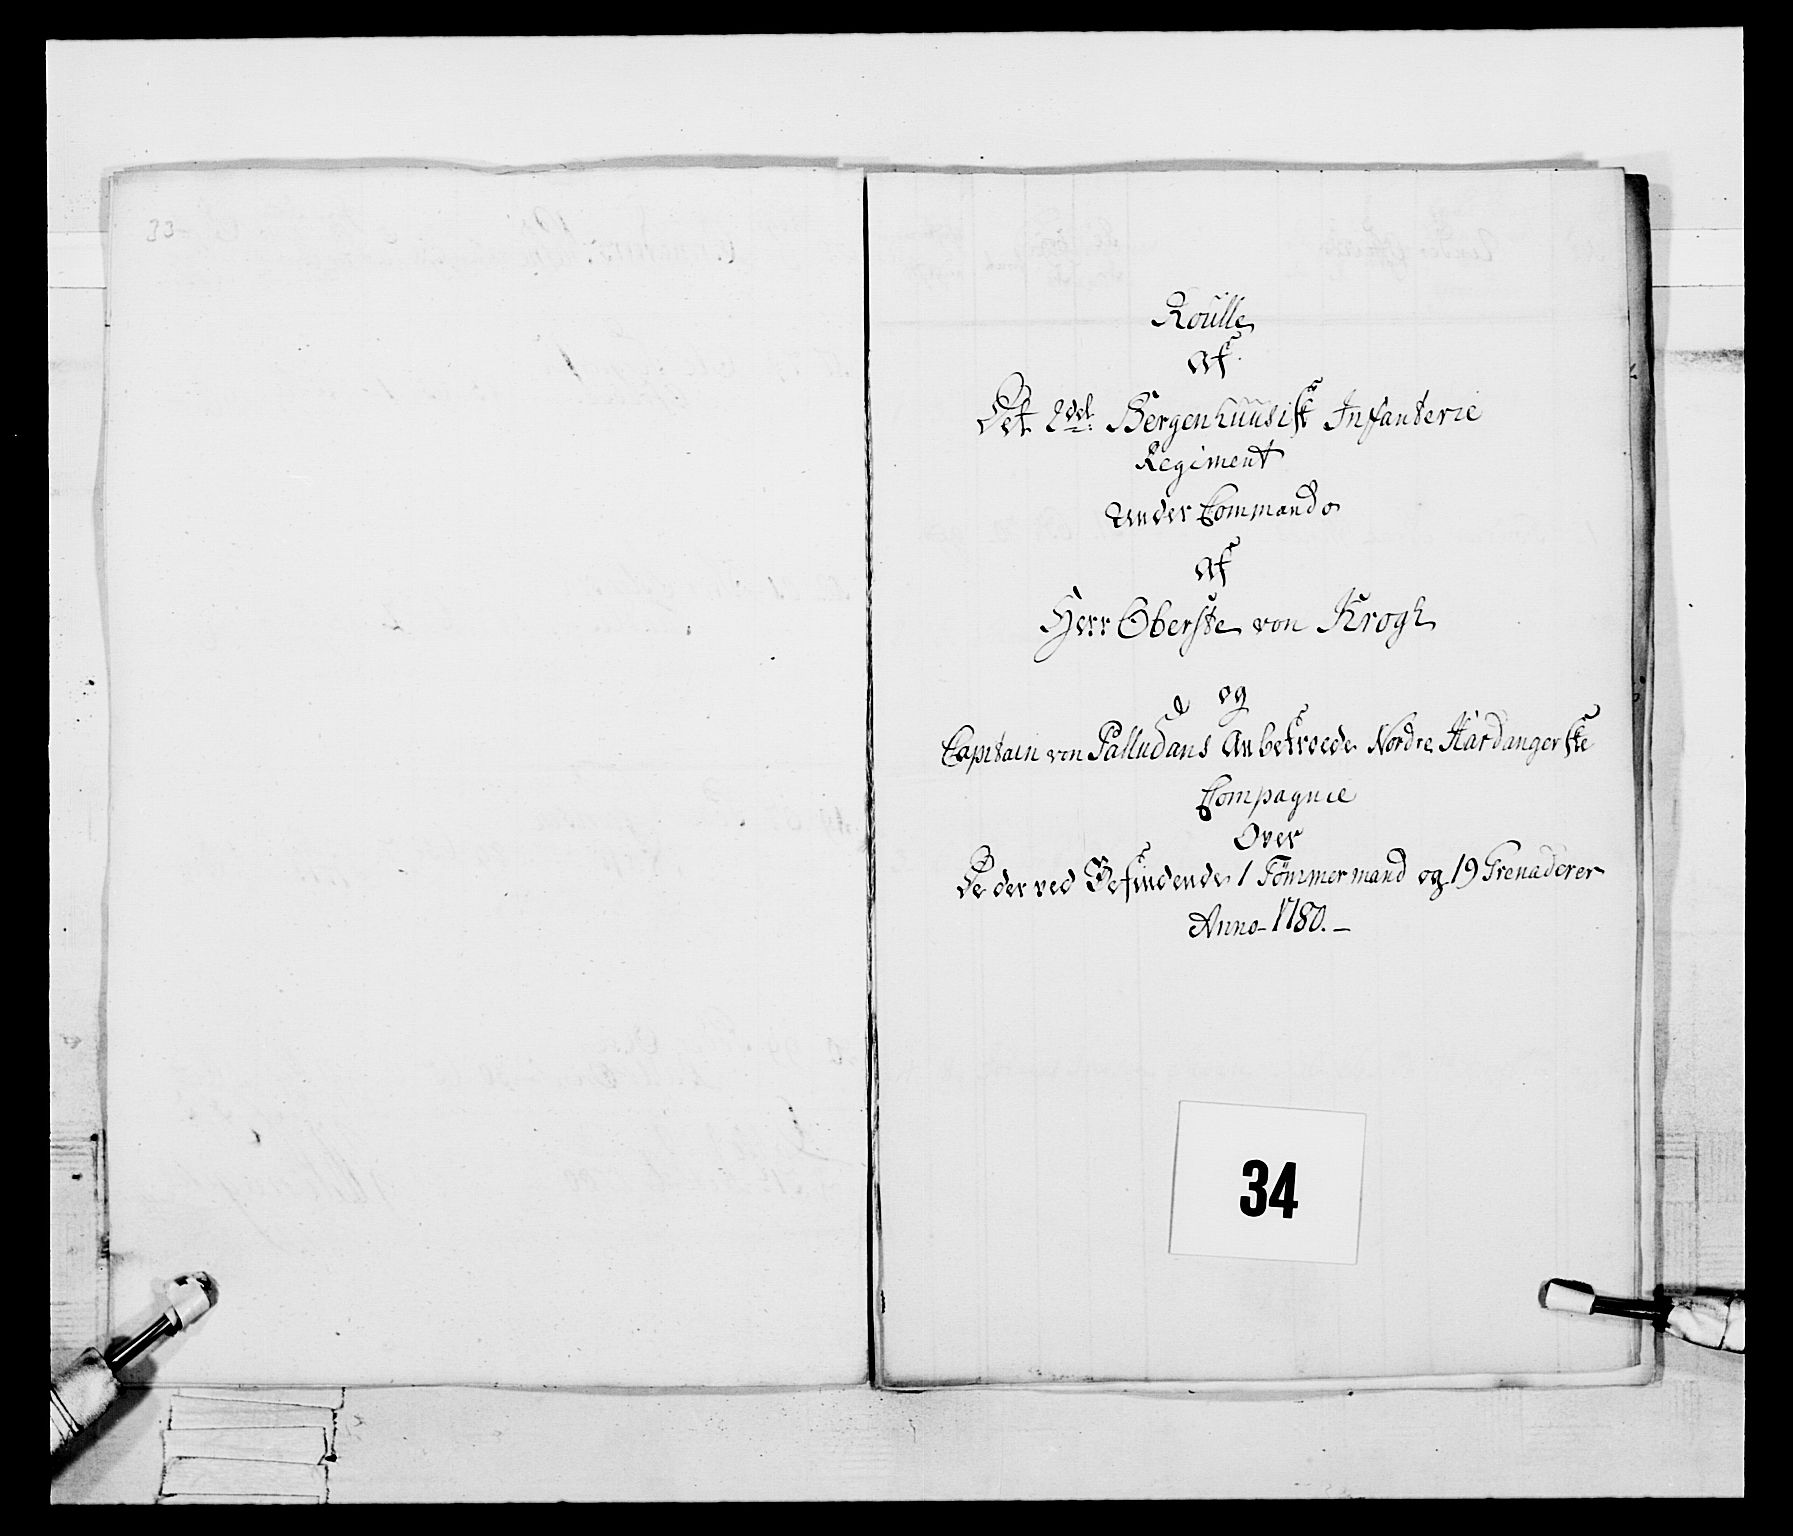 33
Roulle
Af
Det 2det Bergenhuusisk Infanterie
Regiment
Under Commando
Af
Herr Oberste von Krogh
og
Capitain von Palludans Anbetroede Nordre Hardangerske
Compagnie
Over
De der ved Befindende 1 Tömmermand og 19 Grenaderer
Anno 1780.
34